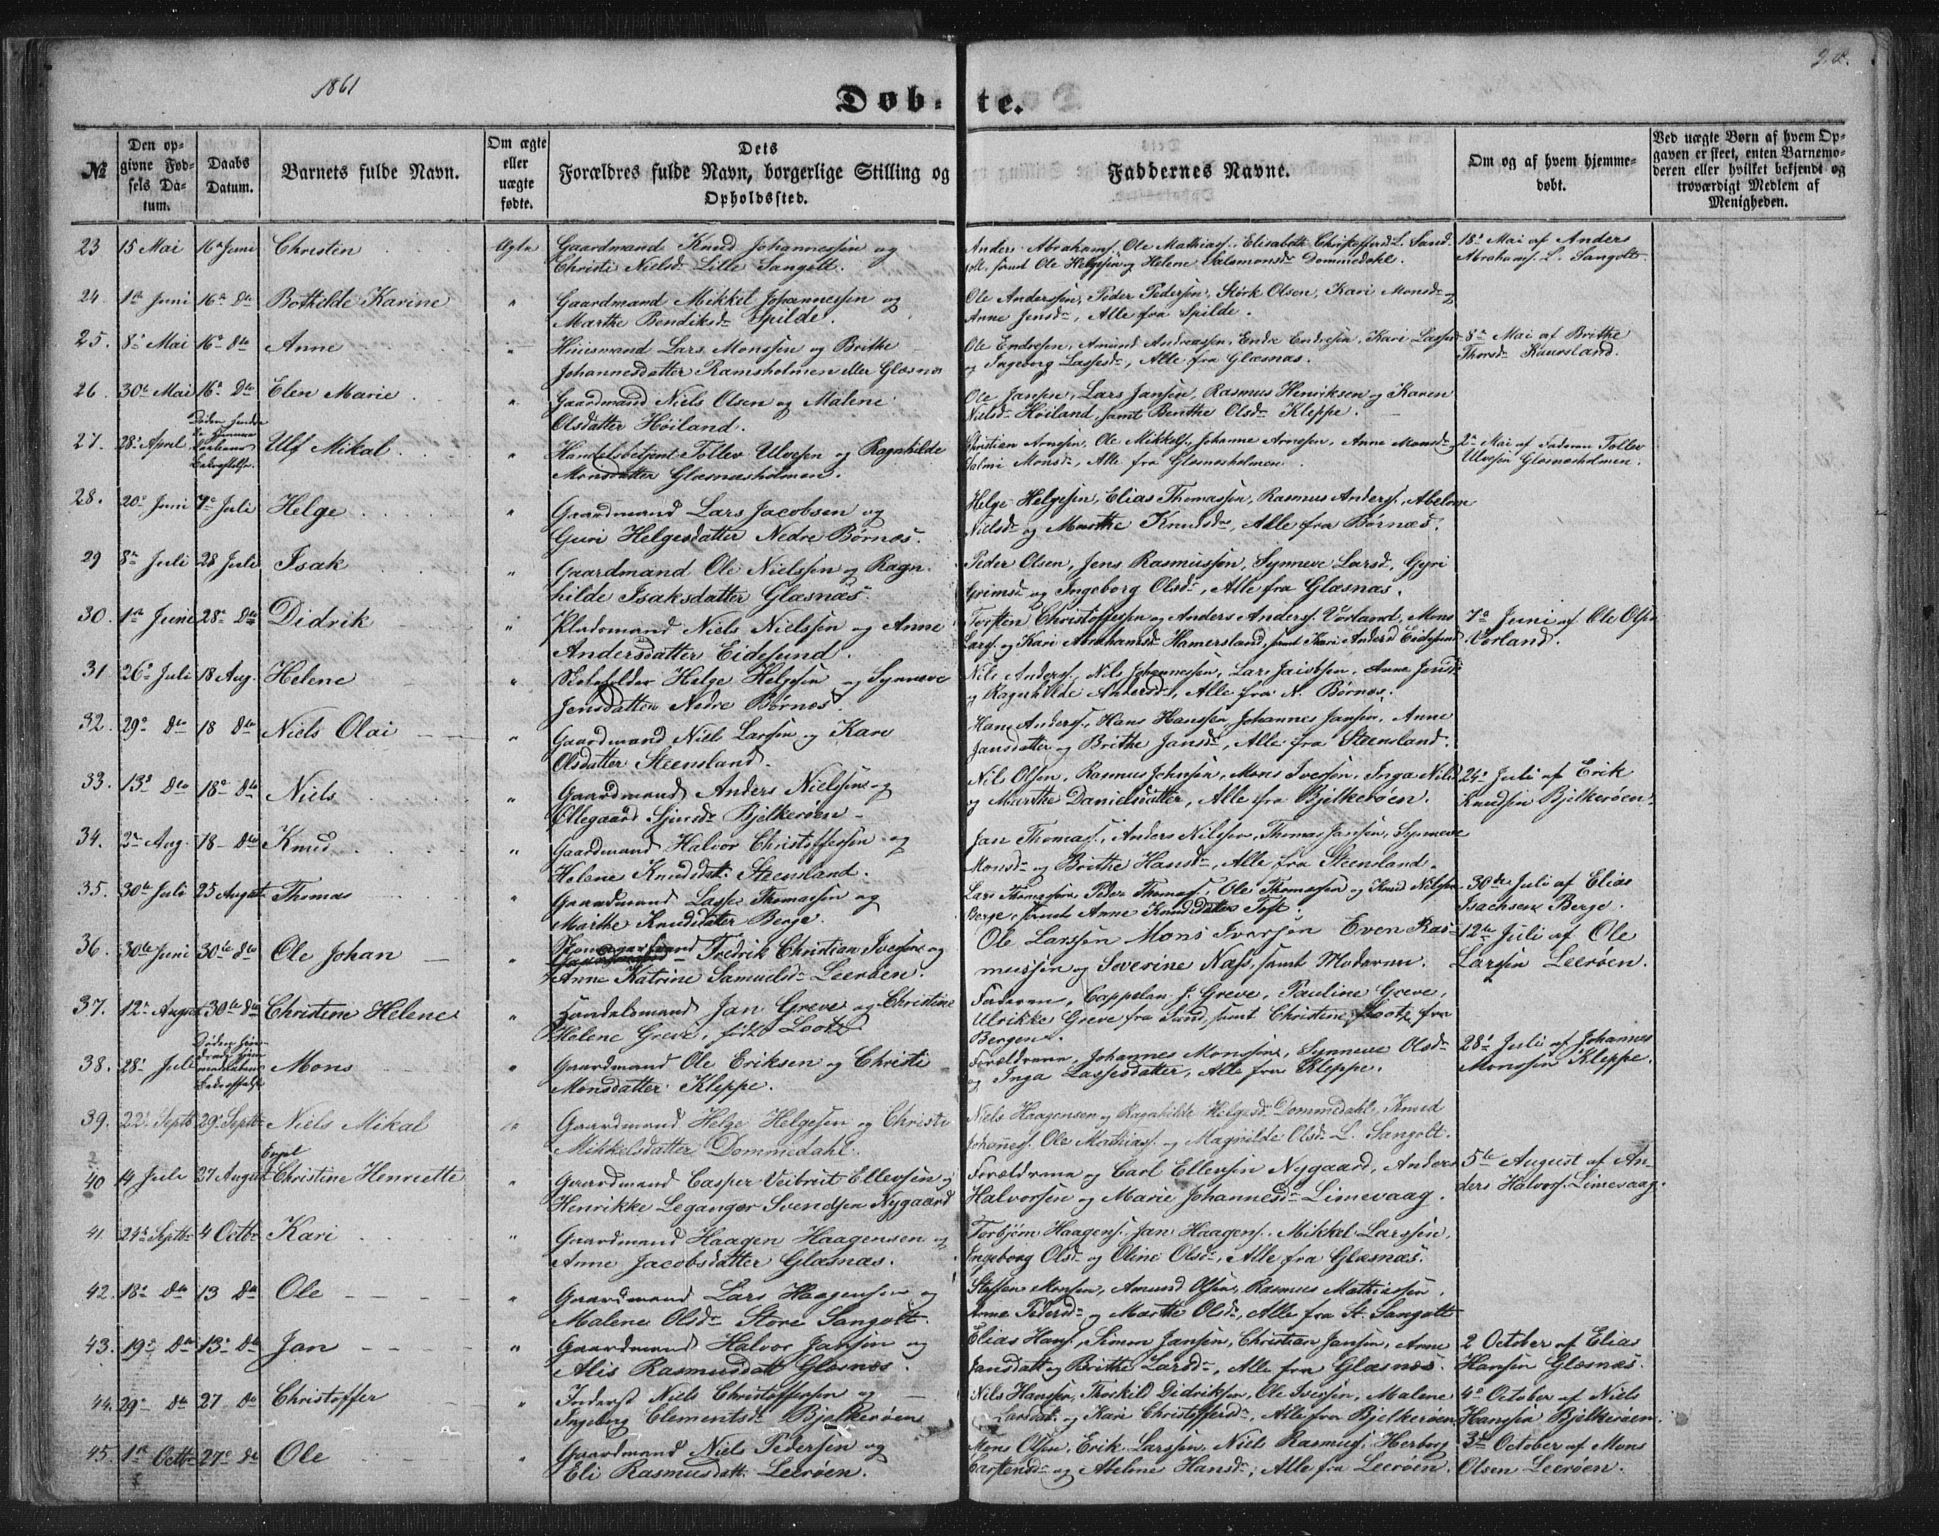 1861
Døbte.
No
Den opgivne Fødsels Datum.
Daabs Datum.
Barnets fulde Navn.
Om ægte eller uægte fødte.
Dets Forældres fulde Navn, borgerlige Stilling og Opholdssted.
Faddernes Navne.
Om og af hvem hjemmedøbt.
Ved uægte Børn af hvem Opgaven er skeet, enten Barnemoderen eller hvilket bekjendt og troværdigt Medlem af Menigheden.
23 15 Mai 16de Juni Christen Ægte Gaardmand Knud Johannessen og Anders Abrahams. Ole Mathias. Elisabeth Christofferd. L. Sand 18de Mai af Anders
Christi Nielsd. Lille Sangolt. samt Ole Helgesen og Helene Salomonsd. Dommedahl. Abrahams. L. Sangolt.
24. 1ste Juni 16de Dto Bothilde Karine " Gaardmand Mikkel Johannessen og Ole Anderssen, Peder Pedersen, Størk Olsen, Kari Monsd. og
Marthe Bendiksd. Spilde. Anne Jensd., Alle fra Spilde.
25. 8de Mai 16de Dto Anne " Huusmand Lars Monssen og Brithe Ole Endresen, Amund Andreassen, Endre Endresen, Kari Lasses 8de Mai af Brithe
Johannesdatter Ramsholmen eller Glæsnæs og Ingeborg Lassesd., Alle fra Glæsnæs. Thorsd. Kuursland.
26. 30te Mai 16de Dto Elen Marie " Gaardmand Niels Olsen og Malene Ole Jansen, Lars Jansen, Rasmus Henriksen og Karen
Olsdatter Høiland. Nielsd. Høiland, samt Berthe Olsd. Kleppe.
27. 28de April Ulf Mikal " Handelsbetjent Tollev Ulvesen og Ragnhilde Christian Arnesen, Ole Mikkels. Johanne Arnesen, Anne Monsd. 2den Mai af Faderen Tollev
Monsdatter Glæsnæsholmen. Monsd., Alle fra Glæsnæsholmen. Ulvesen Glæsnæsholmen.
28. 20de Juni 7de Juli Helge " Gaardmand Lars Jacobsen og Helge Helgesen, Elias Thomassen, Rasmus Anders., Abelone
Guri Helgesdatter Nedre Børnæs. Nielsd. og Marthe Knudsd., Alle fra Børnæs.
29 8de Juli 28 Juli Isak " Gaardmand Ole Nielssen og Ragn- Peder Olsen, Jens Rasmussen, Synneve Larsd., Gyri
hilde Isaksdatter Glæsnæs. Grimsd. og Ingeborg Olsd., Alle fra Glæsnæs.
30. 1ste Juni 28de Dto Didrik " Pladsmand Niels Nielssen og Anne Torsten Christoffersen og Anders Anders. Vorland, Mons 7de Juni af Ole Olsen
Andersdatter Eidesund. Lars. og Kari Abrahamsd. Hamersland, samt Kari Andersd. Eidesund Vorland.
31 26de Juli 18 Aug. Helene " Helge Helgesen og Synneve Nils Anders., Nils Johannessen, Lars Jacobsen, Anne Jensd.
Jensdatter Nedre Børnæs. og Ragnhilde Andersd., Alle fra N. Børnæs.
32. 29de Dto 18 Dto Niels Olai " Gaardmand Niels Larssen og Kari Hans Anders., Hans Hanssen, Johannes Jansen, Anne
Olsdatter Steensland. Jansdatter og Brithe Jansd., Alle fra Steensland.
33. 13de Dto 18de Dto Niels " Gaardmand Anders Nielssen og Nils Olsen, Rasmus Johnsen, Mons Iversen, Inga Nilsd. 24de Juli af Erik
Ollegaard Sjursd. Bjelkerøen og Marthe Danielsdatter, Alle fra Bjelkerøen. Knudsen Bjelkerøen.
34. 2den Aug. 18 Dto Knud " Gaardmand Halvor Christoffersen og Jan Thomas., Anders Nilssen, Thomas Jansen, Synneve
Helene Knudsdat. Steensland. Monsd. og Brithe Hansd., Alle fra Steensland.
35. 30te Juli 25 August Thomas " Gaardmand Lasse Thomassen og Lars Thomassen, Peder Thomas., Ole Thomassen og Knud Nilssen 30te Juli af Elias
Marthe Knudsdatter Berge. Berge, samt Anne Knudsdatter Toft. Isachsen Berge.
36. 30te Juni 30te Dto Ole Johan " Fredrik Christian Iversen og Ole Larssen Mons Iversen Even Ras- 12te Juli af Ole
Anne Katrine Samuelsd. Leerøen. mussen og Severine Næss, samt Moderen. Larssen Leerøen.
37. 12te August 30te Dto Christine Helene " Handelsmand Jan Greve og Christine Faderen, Cappelan J. Greve, Pauline Greve,
Helene Greve, født Lootz. Ulrikke Greve fra Sund, samt Christine Lootz fra
Bergen.
38. 28de Juli Mons " Gaardmand Ole Eriksen og Christi Forældrene, Johannes Monssen, Synneve Olsd. 28de Juli af Johannes
Monsdatter Kleppe. og Inga Lassesdatter, Alle fra Kleppe. Monssen Kleppe.
39. 22de Septb 29de Septb Niels Mikal " Gaardmand Helge Helgesen og Christi Niels Haagensen og Ragnhilde Helgesd. Dommedahl, Knud
Mikkelsdatter Dommedahl. Johannes. Ole Mathias. og Magnilde Olsd. L. Sangolt.
40 14 Juli 27 August Engel Christine Henriette " Gaardmand Casper Veibret Ellersen og Forældrene og Carl Ellersen Nygaard, Anders 5te August af An-
Henrikke Leganger Svendsen Nygaard Halvorsen og Marie Johannesd. Limevaag. ders Halvors. Limevaag.
41. 21de Septb 4 Octbr Kari " Gaardmand Haagen Haagensen og Torbjørn Haagens. Jan Haagens. Mikkel Larssen,
Anne Jacobsdatter Glæsnæs. Ingeborg Olsd. og Oline Olsd., Alle fra Glæsnæs.
42. 18de Dto 13 Dto Ole " Gaardmand Lars Haagensen og Steffen Monsen, Amund Olsen, Rasmus Mathiassen,
Malene Olsd. Store Sangolt. Anne Pedersd. og Marthe Olsd., Alle fra St. Sangolt
43. 19de Dto 13de Dto Jan " Gaardmand Halvor Jansen og Elias Hans., Simon Jansen, Christian Jansen, Anne 2 October af Elias
Alis Rasmusdatt. Glæsnæs. Jansdatt. og Brithe Larsd., Alle fra Glæsnæs. Hansen Glæsnæs.
44. 29de Dto 27 Do Christoffer " Inderst Niels Christoffersen og Nils Hanssen, Thorkild Didriksen, Ole Iversen, Malene 4de October af Niels
Ingeborg Clementsd. Bjelkerøen Larsdat. og Kari Christoffersd., Alle fra Bjelkerøen. Hanssen Bjelkerøen.
45. 1ste Octb 27de Do Ole " Gaardmand Niels Pedersen og Mons Olsen, Erik Larssen, Niels Rasmus., Herborg 3die October af Mons
Eli Rasmusdatt. Leerøen. Carstensd. og Abelone Hansd., Alle fra Leerøen. Olsen Leerøen.